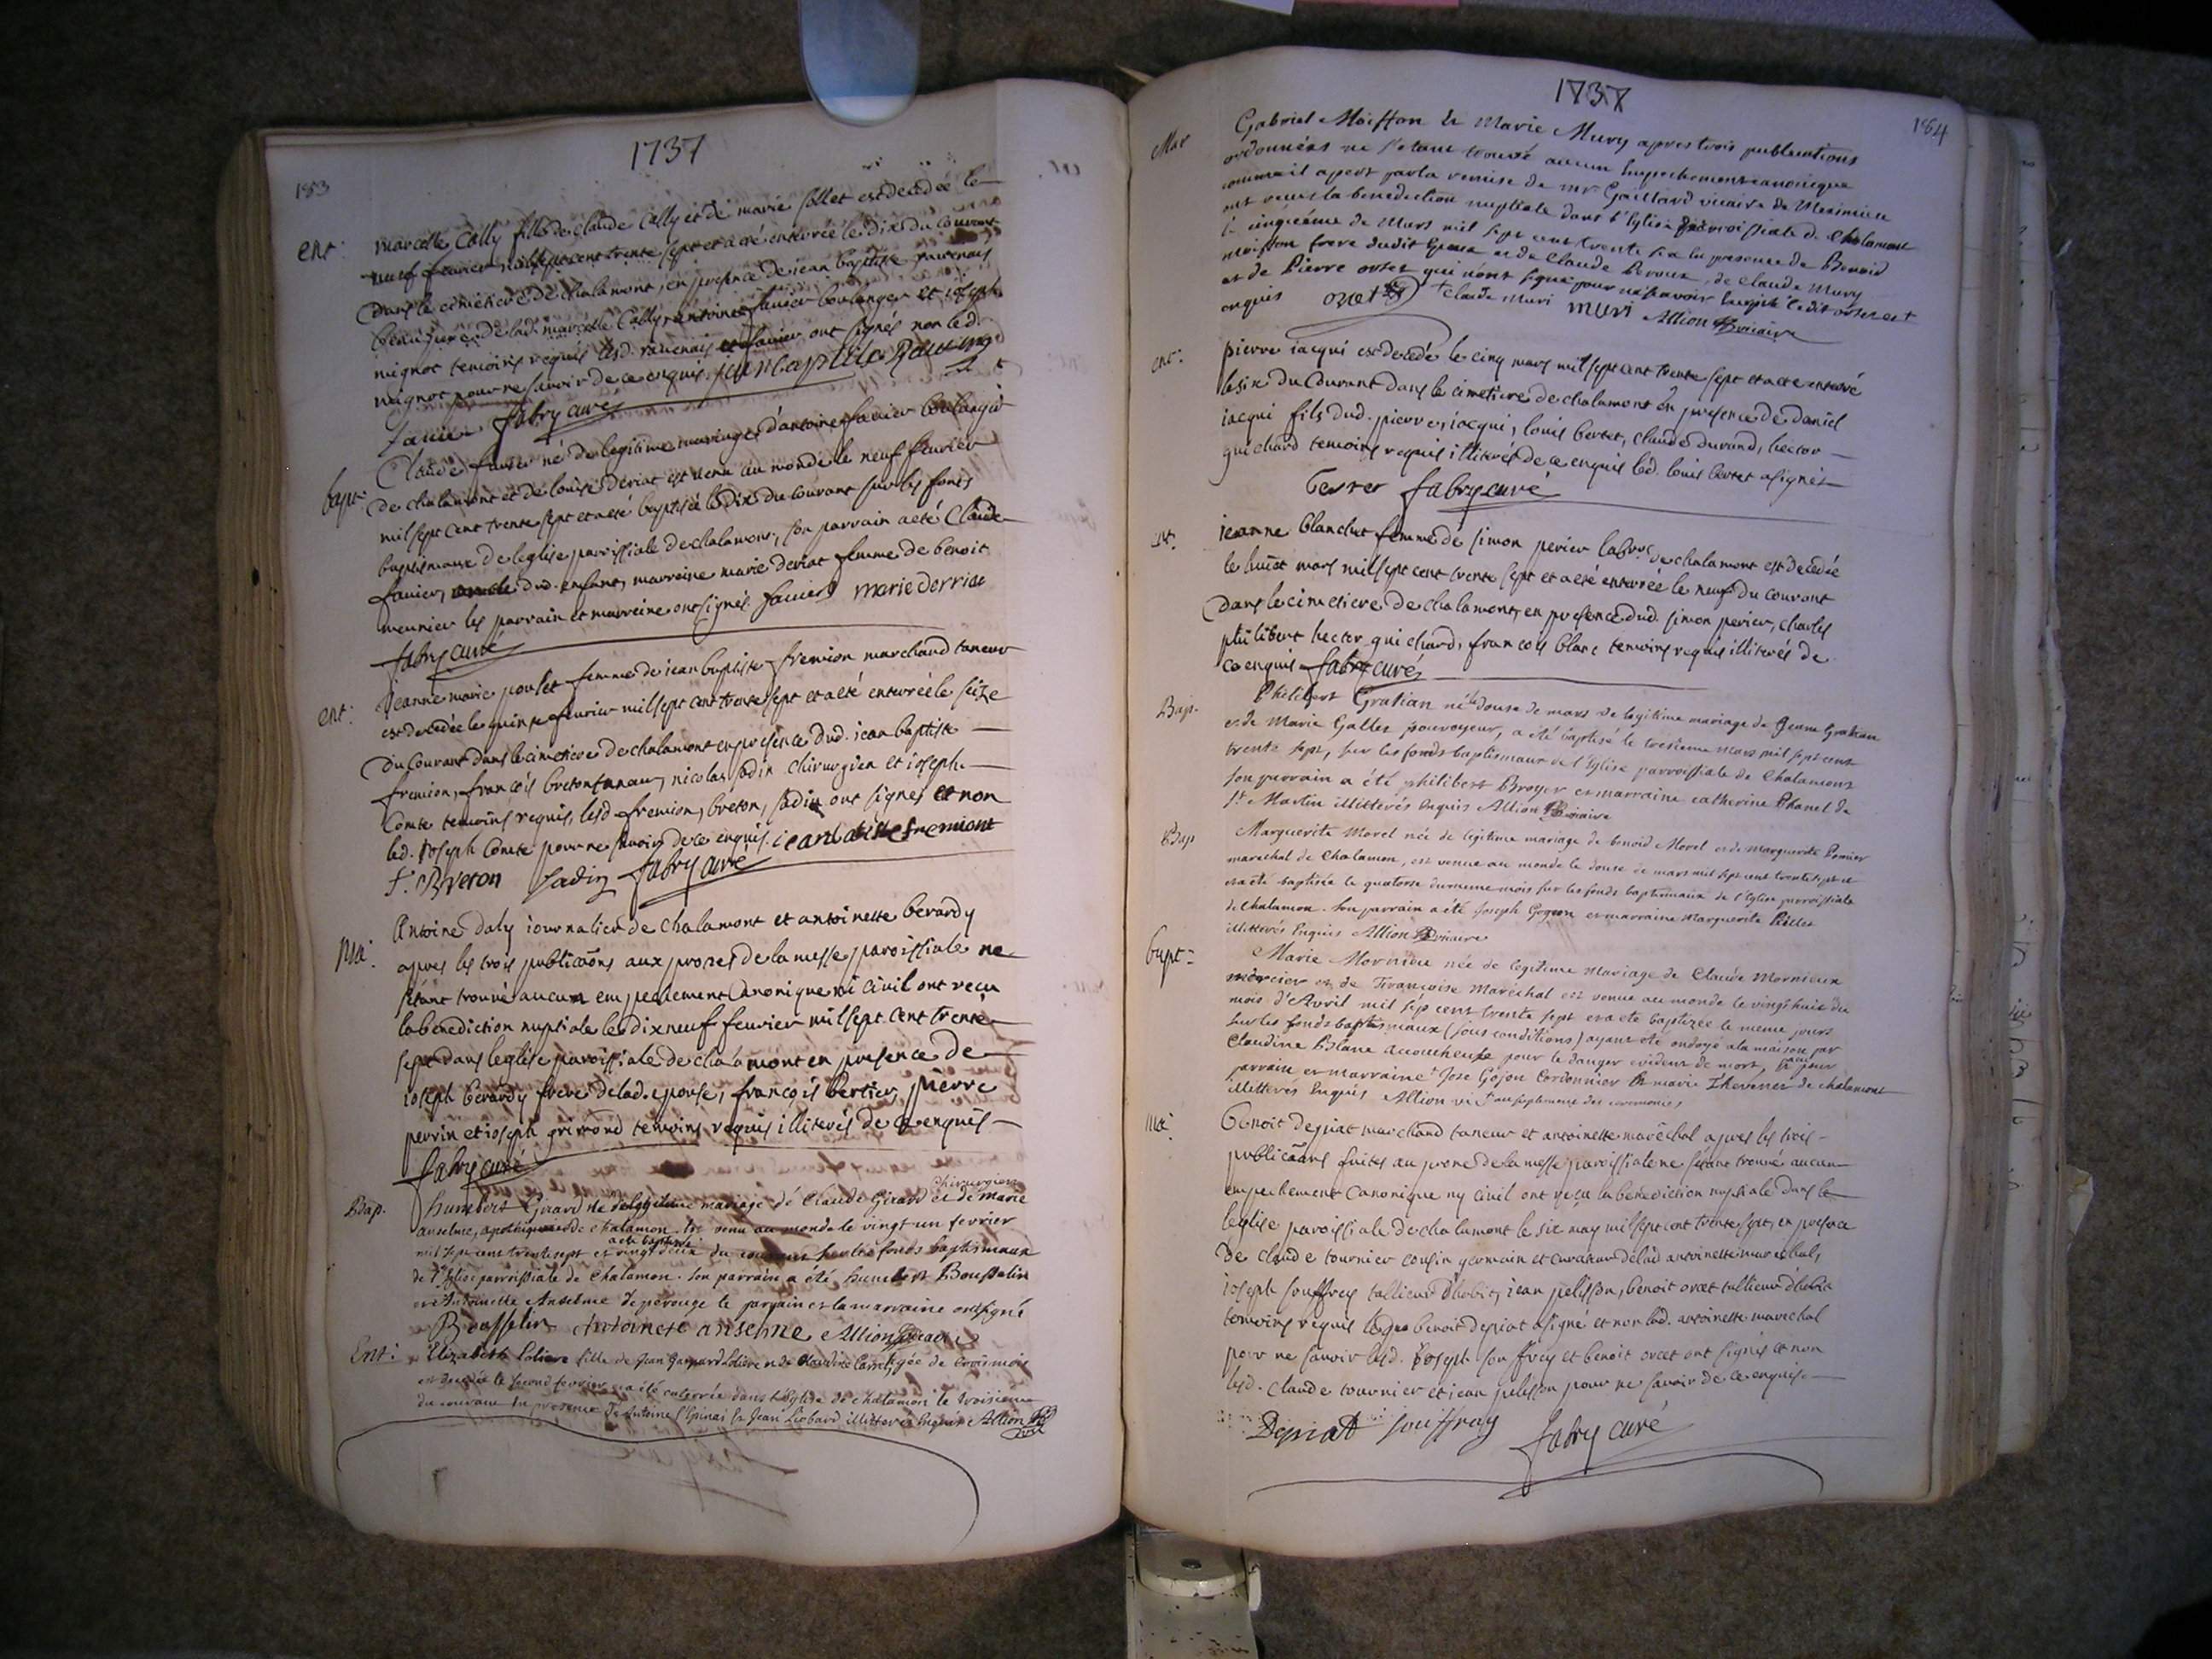 1737
183
ent:
marcelle Cally fille de claude Cally et de marie follet est decedée le
neuf feurier mil sept cent trente sept et a été enterrée le dix du courant
Dans le cimetiere de chalamont, en presence de jean baptiste
de lad. marcelle Cally, antoine fauier boulanger et ioseph
mignot temoins requis lesd. et fauier ont signés non led.
mignot pour ne sauoir de ce enquis. jean baptiste
fauier fabry curé
bapt:
Claude fauier né de legitime mariage d'antoine fauier boulangier
de chalamont et de louise deriat est venu au monde le neuf feurier
mil sept cent trente sept et a été baptisé le dix du courant sur les fonts
baptismaux de leglise paroissiale de chalamont, son parrain a été Claude
fauier, dud. enfant, marreine marie deriat femme de benoit
meunier les parrain et marreine ont signés fauier marie derriat
fabry curé
ent:
Jeanne marie poulet femme de iean baptiste fremion marchand taneur
est decedée le quinze feurier mil sept cent trente sept et a été enterrée le seize
du Courant dans le cimetiere de chalamont en presence dud. iean baptiste
fremion, françois breton taneur, nicolas sadin chirurgien et ioseph
Comte temoins requis, lesd fremion, breton, sadin ont signés et non
led. ioseph Comte pour ne sauoir de ce enquis. iean batiste fremiont
f. Breton Sadin fabry curé
Ma:
Antoine daly iournalier de chalamont et antoinette berardy
apres les trois publicaõns aux prones de la messe paroissiale ne
s'étant trouué aucun empechement Canonique ni civil ont reçu
la benediction nuptiale le dix neuf feurier mil sept cent trente
sept dans leglise paroissiale de chalamont en presence de
ioseph berardy frere de lad. epouse, françois bertier, pierre
perrin et ioseph grimond temoins requis illiterés de ce enquis
fabry curé
Bap.
Chirurgien
humbert Girard né de legitime mariage de Claude Girard et de marie
anselme, de chalamon. est venu au monde le vingt un fevrier
a eté baptisé
mil sept cent trente sept et vingt deux du courant sur les fonds baptismaux
de l'Eglise parroissiale de Chalamon. Son parrain a été humbert Bousselin
et Antoinette Anselme de perouge le parrain et la marraine ont signé
Bousselin Antoinete anselme Allion vicaire
Ent:
Elizabeth Loliere fille de Jean Gaspard Loliere et de Claudine agée de trois mois
est decedée le second fevrier a été enterrée dans l'Eglise de chalamon le troisieme
du courant en presence de Antoine Epinai et Jean Liobard illitterés enquis Allion
1737
184
Mar
Gabriel Moisson et Marie Mury apres trois publications
ordonnées ne s'etant trouvé aucun Empechement canonique
comme il apert par la remise de mr Gaillard vicaire de Meximieu
ont receu la benediction nuptiale dans l'Eglise parroissiale de Chalamont
le cinquième de Mars mil sept cent trente en la presence de Benoid
moisson frere dudit Epoux et de Claude Peroux, de Claude Mury
et de Pierre orset qui n'ont signé pour ne sçavoir ledit orset et
enquis orset Claude Muri MURI Allion vicaire
ent:
pierre iacqui est decedé le cinq mars mil sept cent trente sept et a été enterré
le six du Courant dans le cimetiere de chalamont en presence de daniel
iacqui fils dud. pierre, iacqui, louis bertet, claude durand, hector
guichard temoins requis illiterés de ce enquis led. louis bertet a signé
fabry curé
ent.
jeanne blanchet femme de simon perier labr de chalamont est decedée
le huict mars mil sept cent trente sept et a été enterrée le neuf du courant
Dans le cimetiere de chalamont, en presence dud. simon perier, charles
philibert hector guichard, françois blanc temoins requis illiterés de
ce enquis fabry curé
Bap.
Philibert Gratian né le douse de mars de legitime mariage de Jeanne Gratian
et de Marie Gallet pourvoyeur, a été baptisé le tresieme mars mil sept cent
trente sept, sur les fonds baptismaux de l'Eglise parroissiale de Chalamont
son parrain a été philibert Broyer et marraine catherine Chanel de
St Martin illitterés Enquis Allion vicaire
Bap
Marguerite Morel née de legitime mariage de benoid Morel et de marguerite
marechal de Chalamon, est venue au monde le douse de mars mil sept cent trente sept et
et a eté baptisée le quatorse du meme mois sur les fonds baptismaux de l'Eglise parroissiale
de Chalamon. Son parrain a été Joseph et marraine Marguerite
illitterés Enquis Allion vicaire
bapt:
Marie Mornieu née de legitime Mariage de Claude Mornieux
mercier et de Françoise Maréchal est venue au monde le vingt huit du
mois d'Avril mil sép cent trente sept et a eté baptizée le meme jours
sur les fonds baptismaux (sous conditions) ayant eté ondoyé a la maison par
Claudine Blanc accoucheuse pour le danger evident de mort, a eu pour
parrain et marraine Jose Gojon Cordonnier et marie Thevenet de chalamont
illitterés Enquis Allion vi au suplement des ceremonies
Ma:
Benoit depiat marchand taneur et antoinette maréchal apres les trois
publicaõns faites au prone de la messe paroissiale ne s'étant trouué aucun
empechement Canonique ny Civil ont reçu la benediction nuptiale dans le
leglise paroissiale de chalamont le six may mil sept cent trente sept, en presence
de claude tournier cousin germain et curateur de lad antoinette marechal,
ioseph souffrey tallieur d'habit, iean pelisson, benoit orcet tallieur d'habit
temoins requis led. benoit depiat a signé et non lad. antoinette marechal
pour ne sauoir lesd. ioseph souffrey et benoit orcet ont signés et non
lesd. claude tournier et iean pelisson pour ne sauoir de ce enquis
Depiat souffray fabry curé